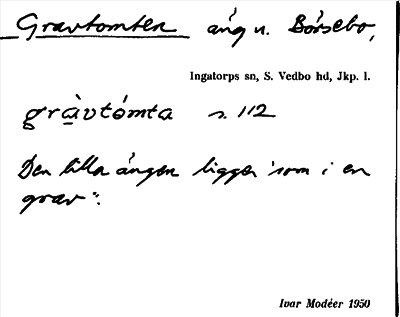 Gravtomten äng n. Börsebo,
Ingatorps sn, S. Vedbo hd, Jkp. l.
gràvtómta s. 112
Den lilla ängen ligger "som i en
grav".
Ivar Modéer 1950